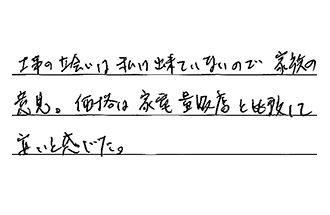 工事の立会いは私は出来ていないので 家族の
意見。価格は家電量販店と比較して
安いと感じた。